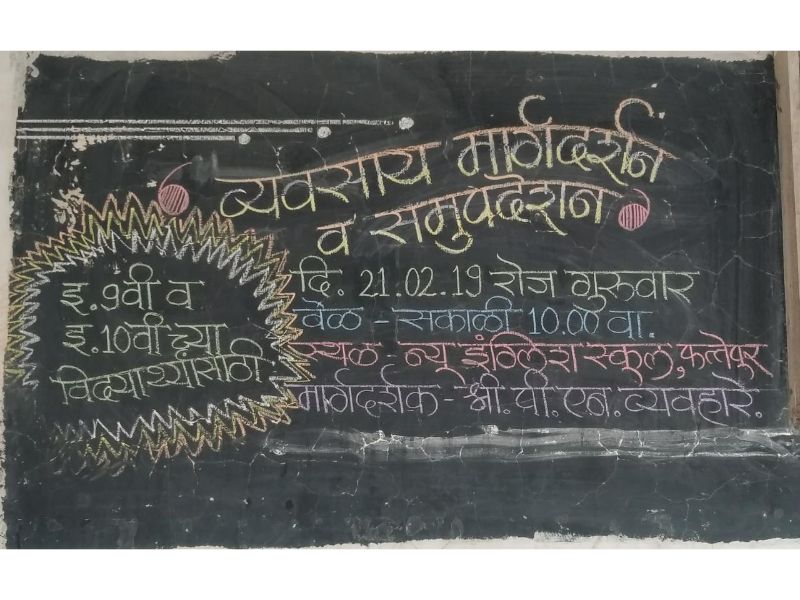 व्यवसाय मार्गदर्शन
व समुपदेशन
इ. 9वी व
इ. 10वी च्या
विद्यार्थ्यांसाठी
दि. 21.02.19 रोज गुरुवार
वेळ - सकाळी 10.00 वा.
स्थळ - न्यु इंग्लिश स्कुल, फत्तेपुर
मार्गदर्शक - श्री. पी. एन. व्यवहारे.